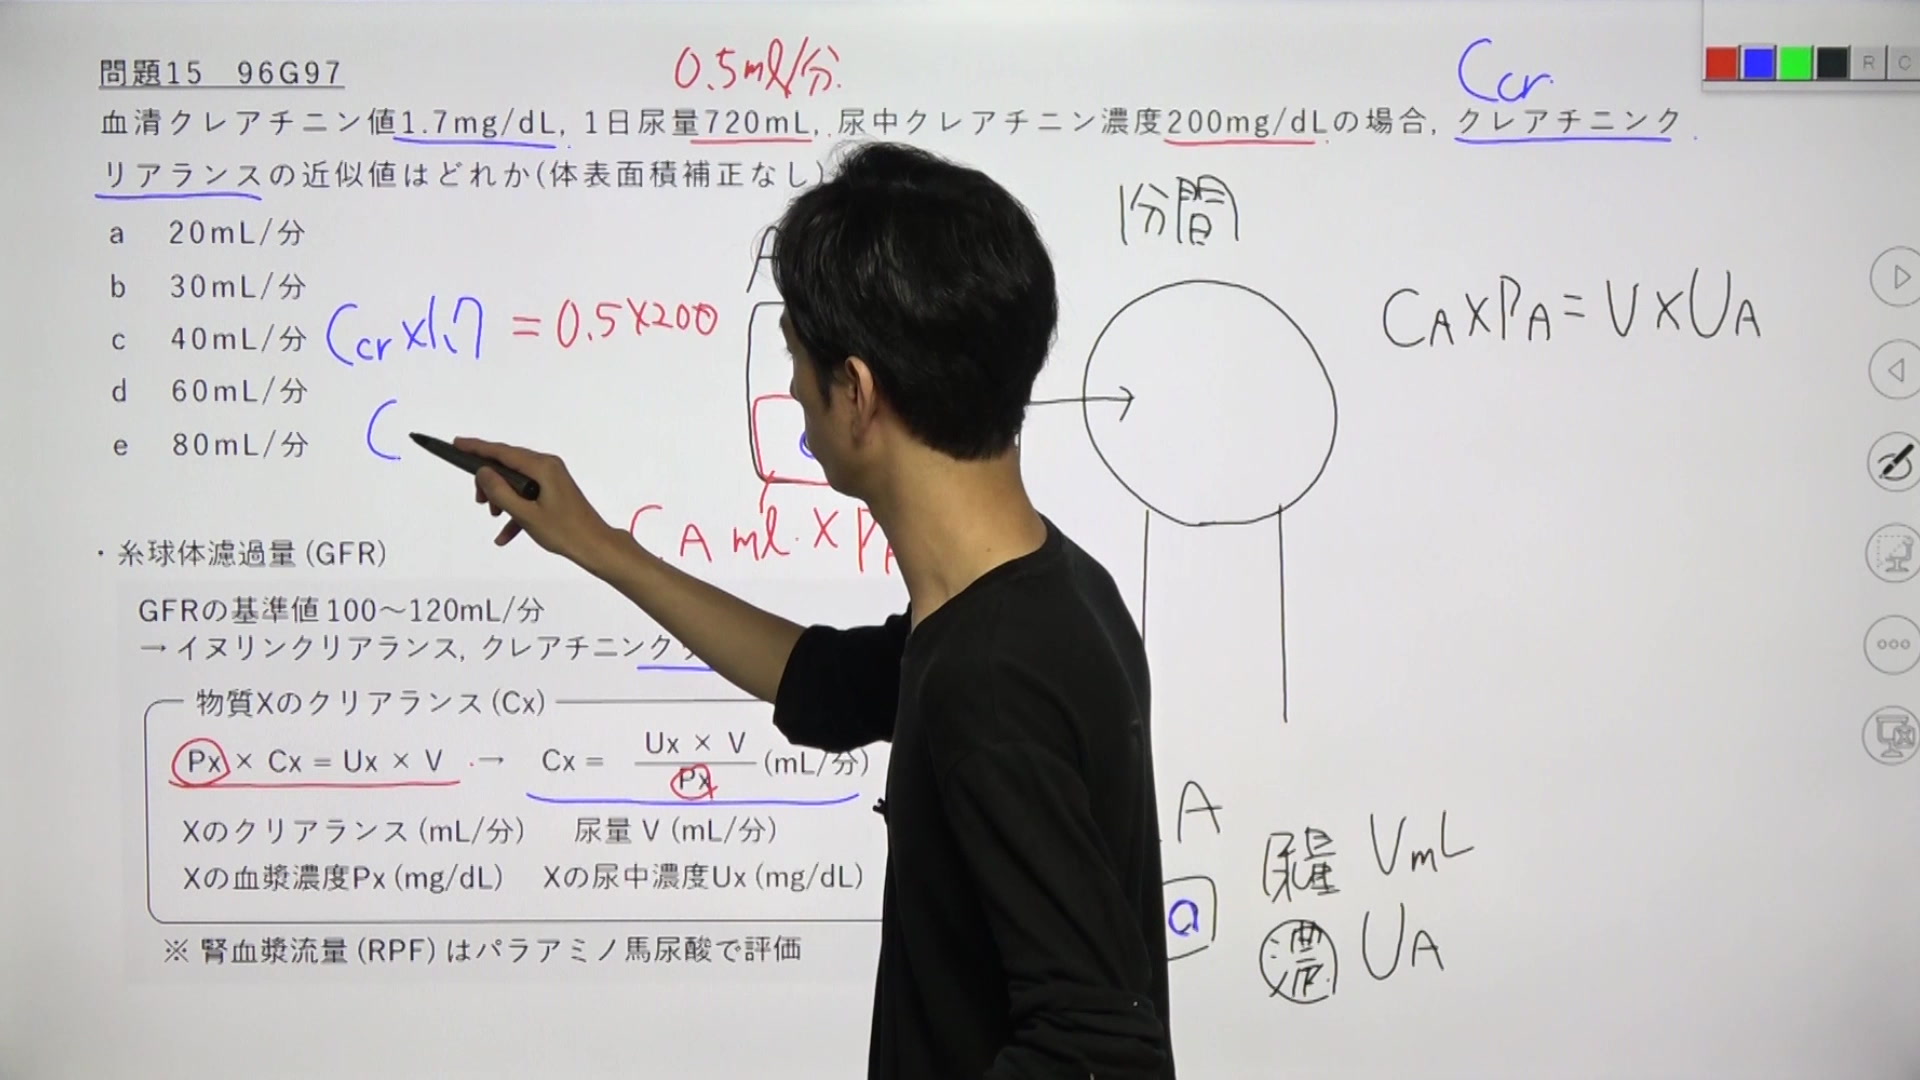 問題15 96G97
0.5ml/分.
Ccr.
血清クレアチニン値1.7mg/dL, 1日尿量720mL, 尿中クレアチニン濃度200mg/dLの場合, クレアチニンク
リアランスの近似値はどれか(体表面積補正なし)
a 20mL/分
b 30mL/分
c 40mL/分
d 60mL/分
e 80mL/分
Ccr×1.7 = 0.5×200
C
A
1分間
CA×PA=V×UA
CA ml.×PA
・糸球体濾過量(GFR)
GFRの基準値100〜120mL/分
→イヌリンクリアランス, クレアチニンク
物質Xのクリアランス(Cx)
Px × Cx = Ux × V → Cx = Ux × V / Px (mL/分)
Xのクリアランス(mL/分) 尿量 V (mL/分)
Xの血漿濃度Px(mg/dL) Xの尿中濃度Ux(mg/dL)
※ 腎血漿流量(RPF)はパラアミノ馬尿酸で評価
A
尿量 VmL
濃 UA
R C